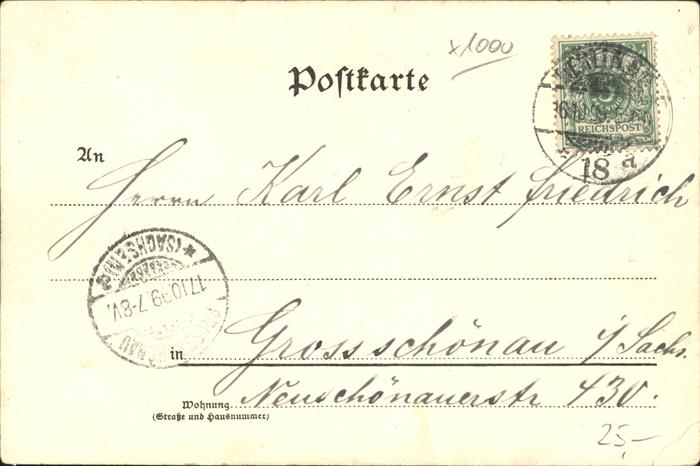 x1000
Postkarte
REICHSPOST
18 a
An
Herrn Karl Ernst Friedrich
(SACHSEN)
17.10.99.7-8V.
in Grossschönau i/Sachs.
Neuschönauerstr 430.
Wohnung
(Straße und Hausnummer)
25,-